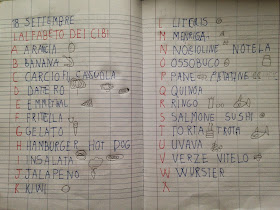 18 SETTEMBRE
L'ALFABETO DEI CIBI
A ARANCIA
B BANANA
C CARCIOFI CASUOLA
D DATERO
E EMMENTAL
F FRITELLA
G GELATO
H HAMBURGER HOT DOG
I INSALATA
J JALAPENO
K KIWI
L
M MENROSA
N NOCCIOLINE NOTELA
O OSSOBUCO
P PANE PATATINE
Q QUINOA
R RINGO
S SALMONE SUSHI
T TORTA TROTA
U UVAVA
V VERZE VITELO
W WURSTER
X